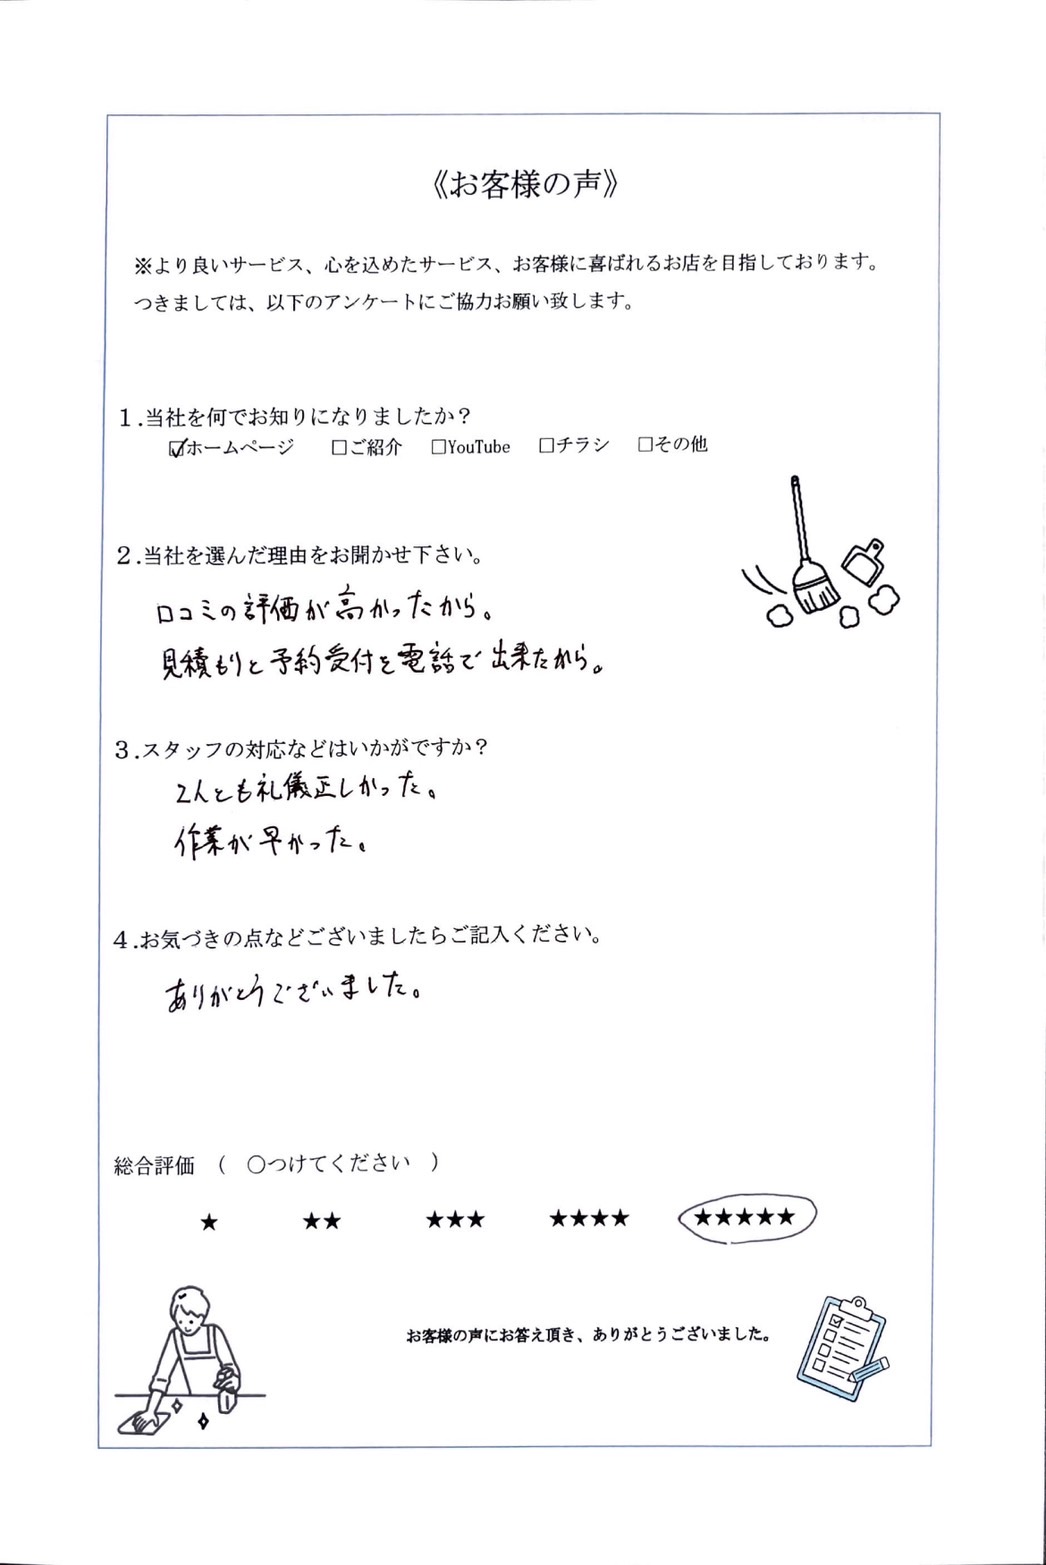 《お客様の声》
※より良いサービス、心を込めたサービス、お客様に喜ばれるお店を目指しております。
つきましては、以下のアンケートにご協力お願い致します。
1.当社を何でお知りになりましたか？
☑ホームページ □ご紹介 □YouTube □チラシ □その他
2.当社を選んだ理由をお聞かせ下さい。
口コミの評価が高かったから。
見積もりと予約受付を電話で出来たから。
3.スタッフの対応などはいかがですか？
2人とも礼儀正しかった。
作業が早かった。
4.お気づきの点などございましたらご記入ください。
ありがとうございました。
総合評価 （ ○つけてください ）
★ ★★ ★★★ ★★★★ ★★★★★
お客様の声にお答え頂き、ありがとうございました。